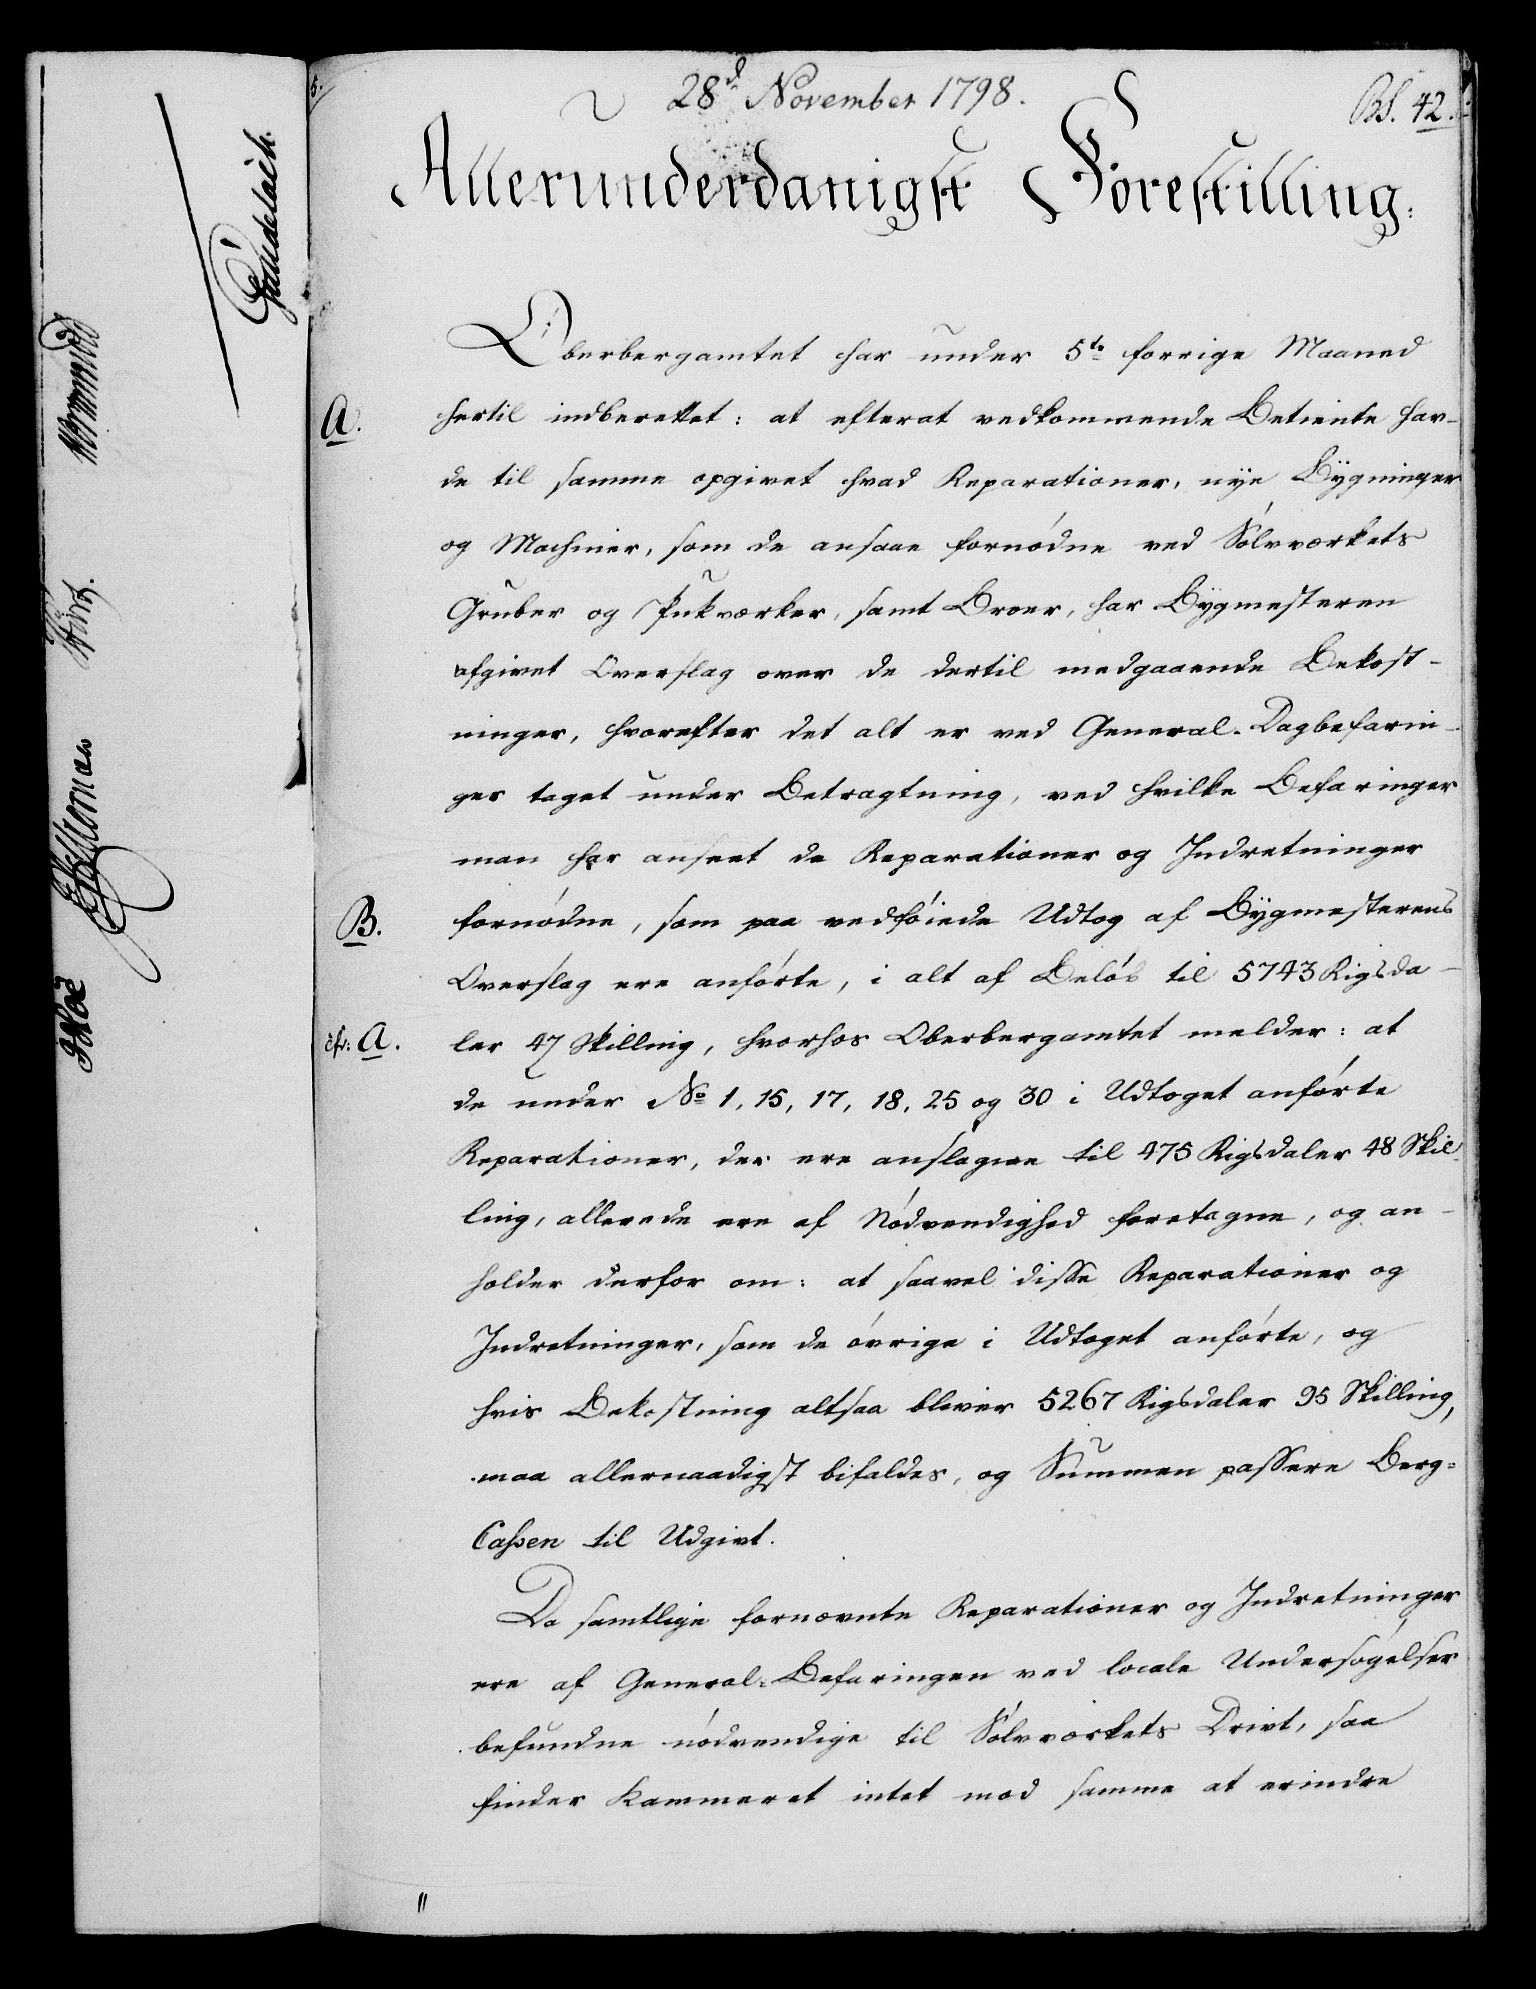 28d November 1798.
Bl. 42.
Allerunderdanigst Forestilling.
Oberbergamtet har under 5te forrige Maaned
A.
hertil indberettet: at efterat vedkommende Betiente hav-
de til samme opgivet hvad Reparationer, nye Bygninger
og Maskiner, som de ansaae fornødne ved Sølvværkets
Gruber og Pukværker, samt Broer, har Bygmesteren
afgivet Overslag over de dertil medgaaende Bekost-
ninger, hvorefter det alt er ved General-Dagbefarin-
ger taget under Betragtning, ved hvilke Befaringer
man har anseet de Reparationer og Indretninger
B.
fornødne, som paa vedføiede Udtog af Bygmesterens
Overslag ere anførte, i alt af Beløb til 5743 Rigsda-
cfr: A.
ler 47 Skilling, hvorhos Oberbergamtet melder: at
de under No 1, 15, 17, 18, 25 og 30 i Udtoget anførte
Reparationer, der ere anslagne til 475 Rigsdaler 48 Skil-
ling, allerede ere af Nødvendighed foretagne, og an-
holder derfor om: at saavel disse Reparationer og
Indretninger, som de øvrige i Udtoget anførte, og
hvis Bekostning altsaa bliver 5267 Rigsdaler 95 Skilling,
maa allernaadigst bifaldes, og Summen passere Berg-
Cassen til Udgivt.
Da samtlige fornævnte Reparationer og Indretninger
ere af General-Befaringen ved locale Undersøgelser
befundne nødvendige til Sølvværkets Drivt, saa
finder Kammeret intet mod samme at erindre